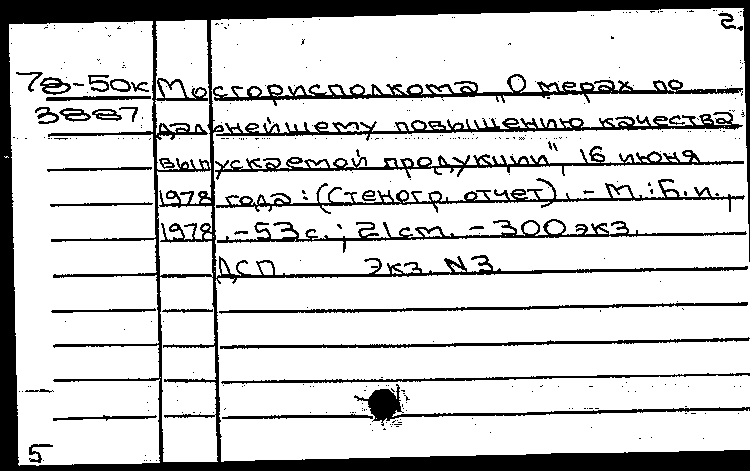 2.
78-50к Мосгорисполкома „О мерах по
3887 дальнейшему повышению качества
выпускаемой продукции", 16 июня
1978 года: (Стеногр. отчет). - М.: Б.и.,
1978. - 53 с.; 21 ст. - 300 экз.
ДСП. Экз. N3.
5